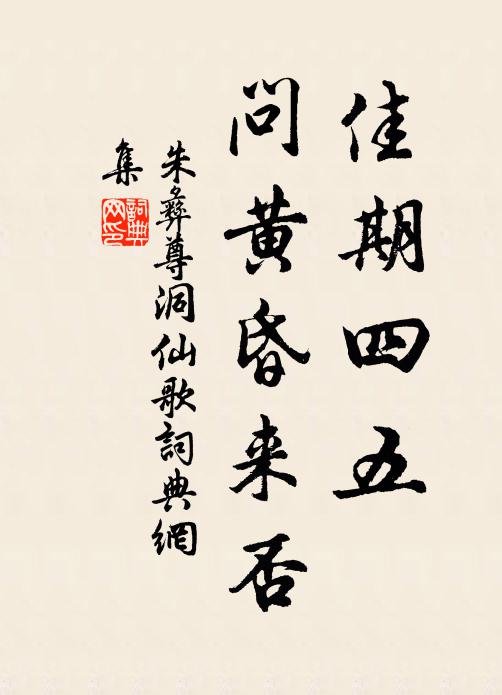 佳期四五
问黄昏来否
朱彝尊洞仙歌詞典網
集
詞典
网印